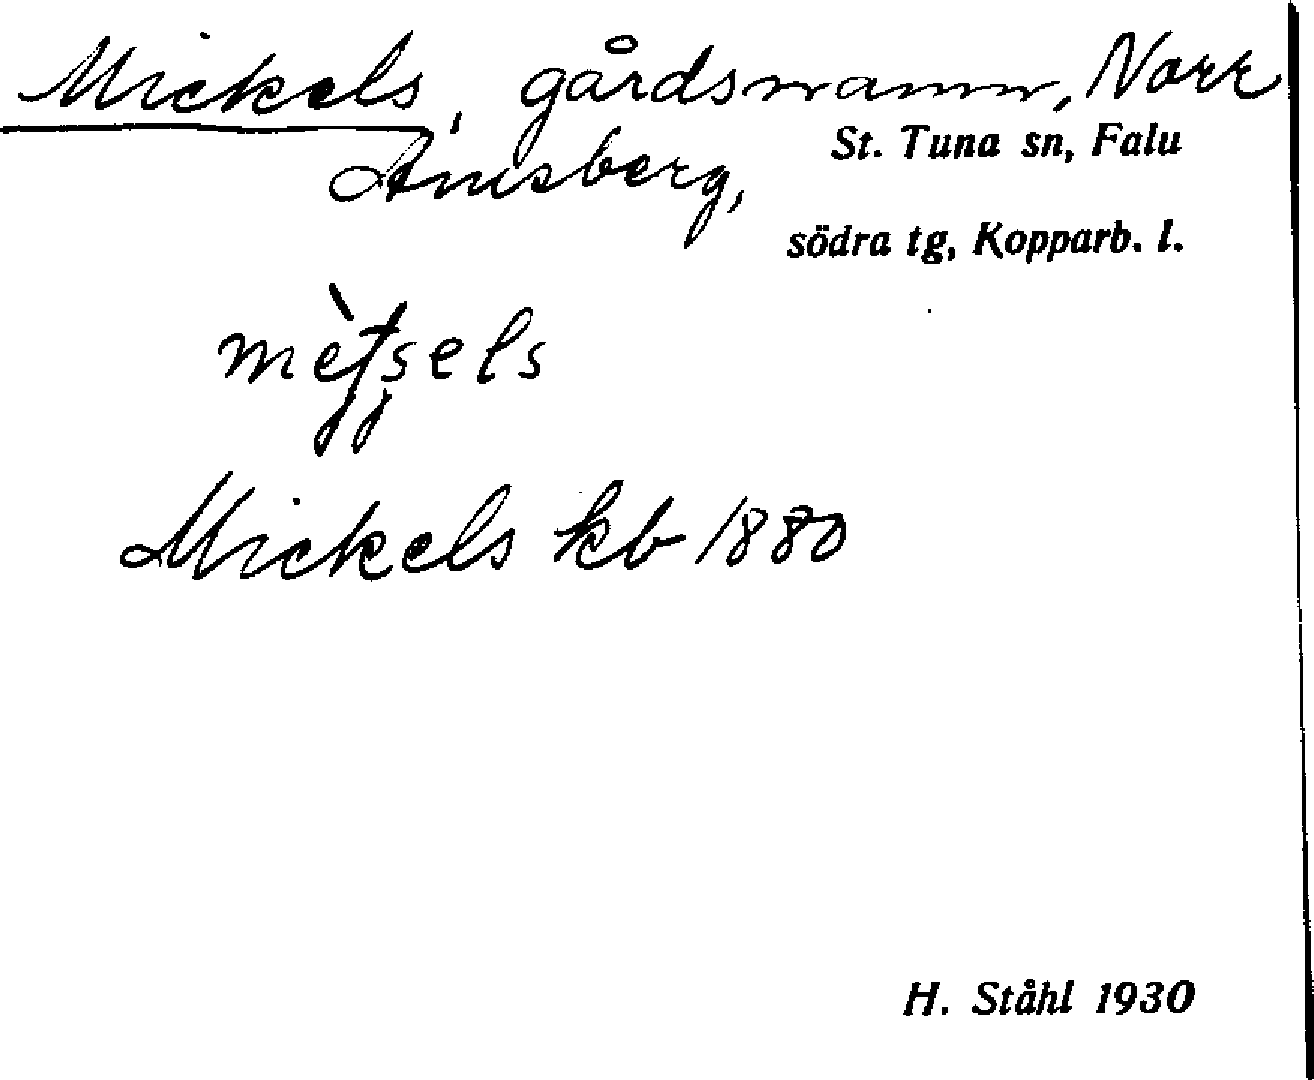 Mickels, gårdsnamn, Norr
Amsberg,
St. Tuna sn, Falu
södra tg, Kopparb. l.
Mickels kb 1880
H. Ståhl 1930